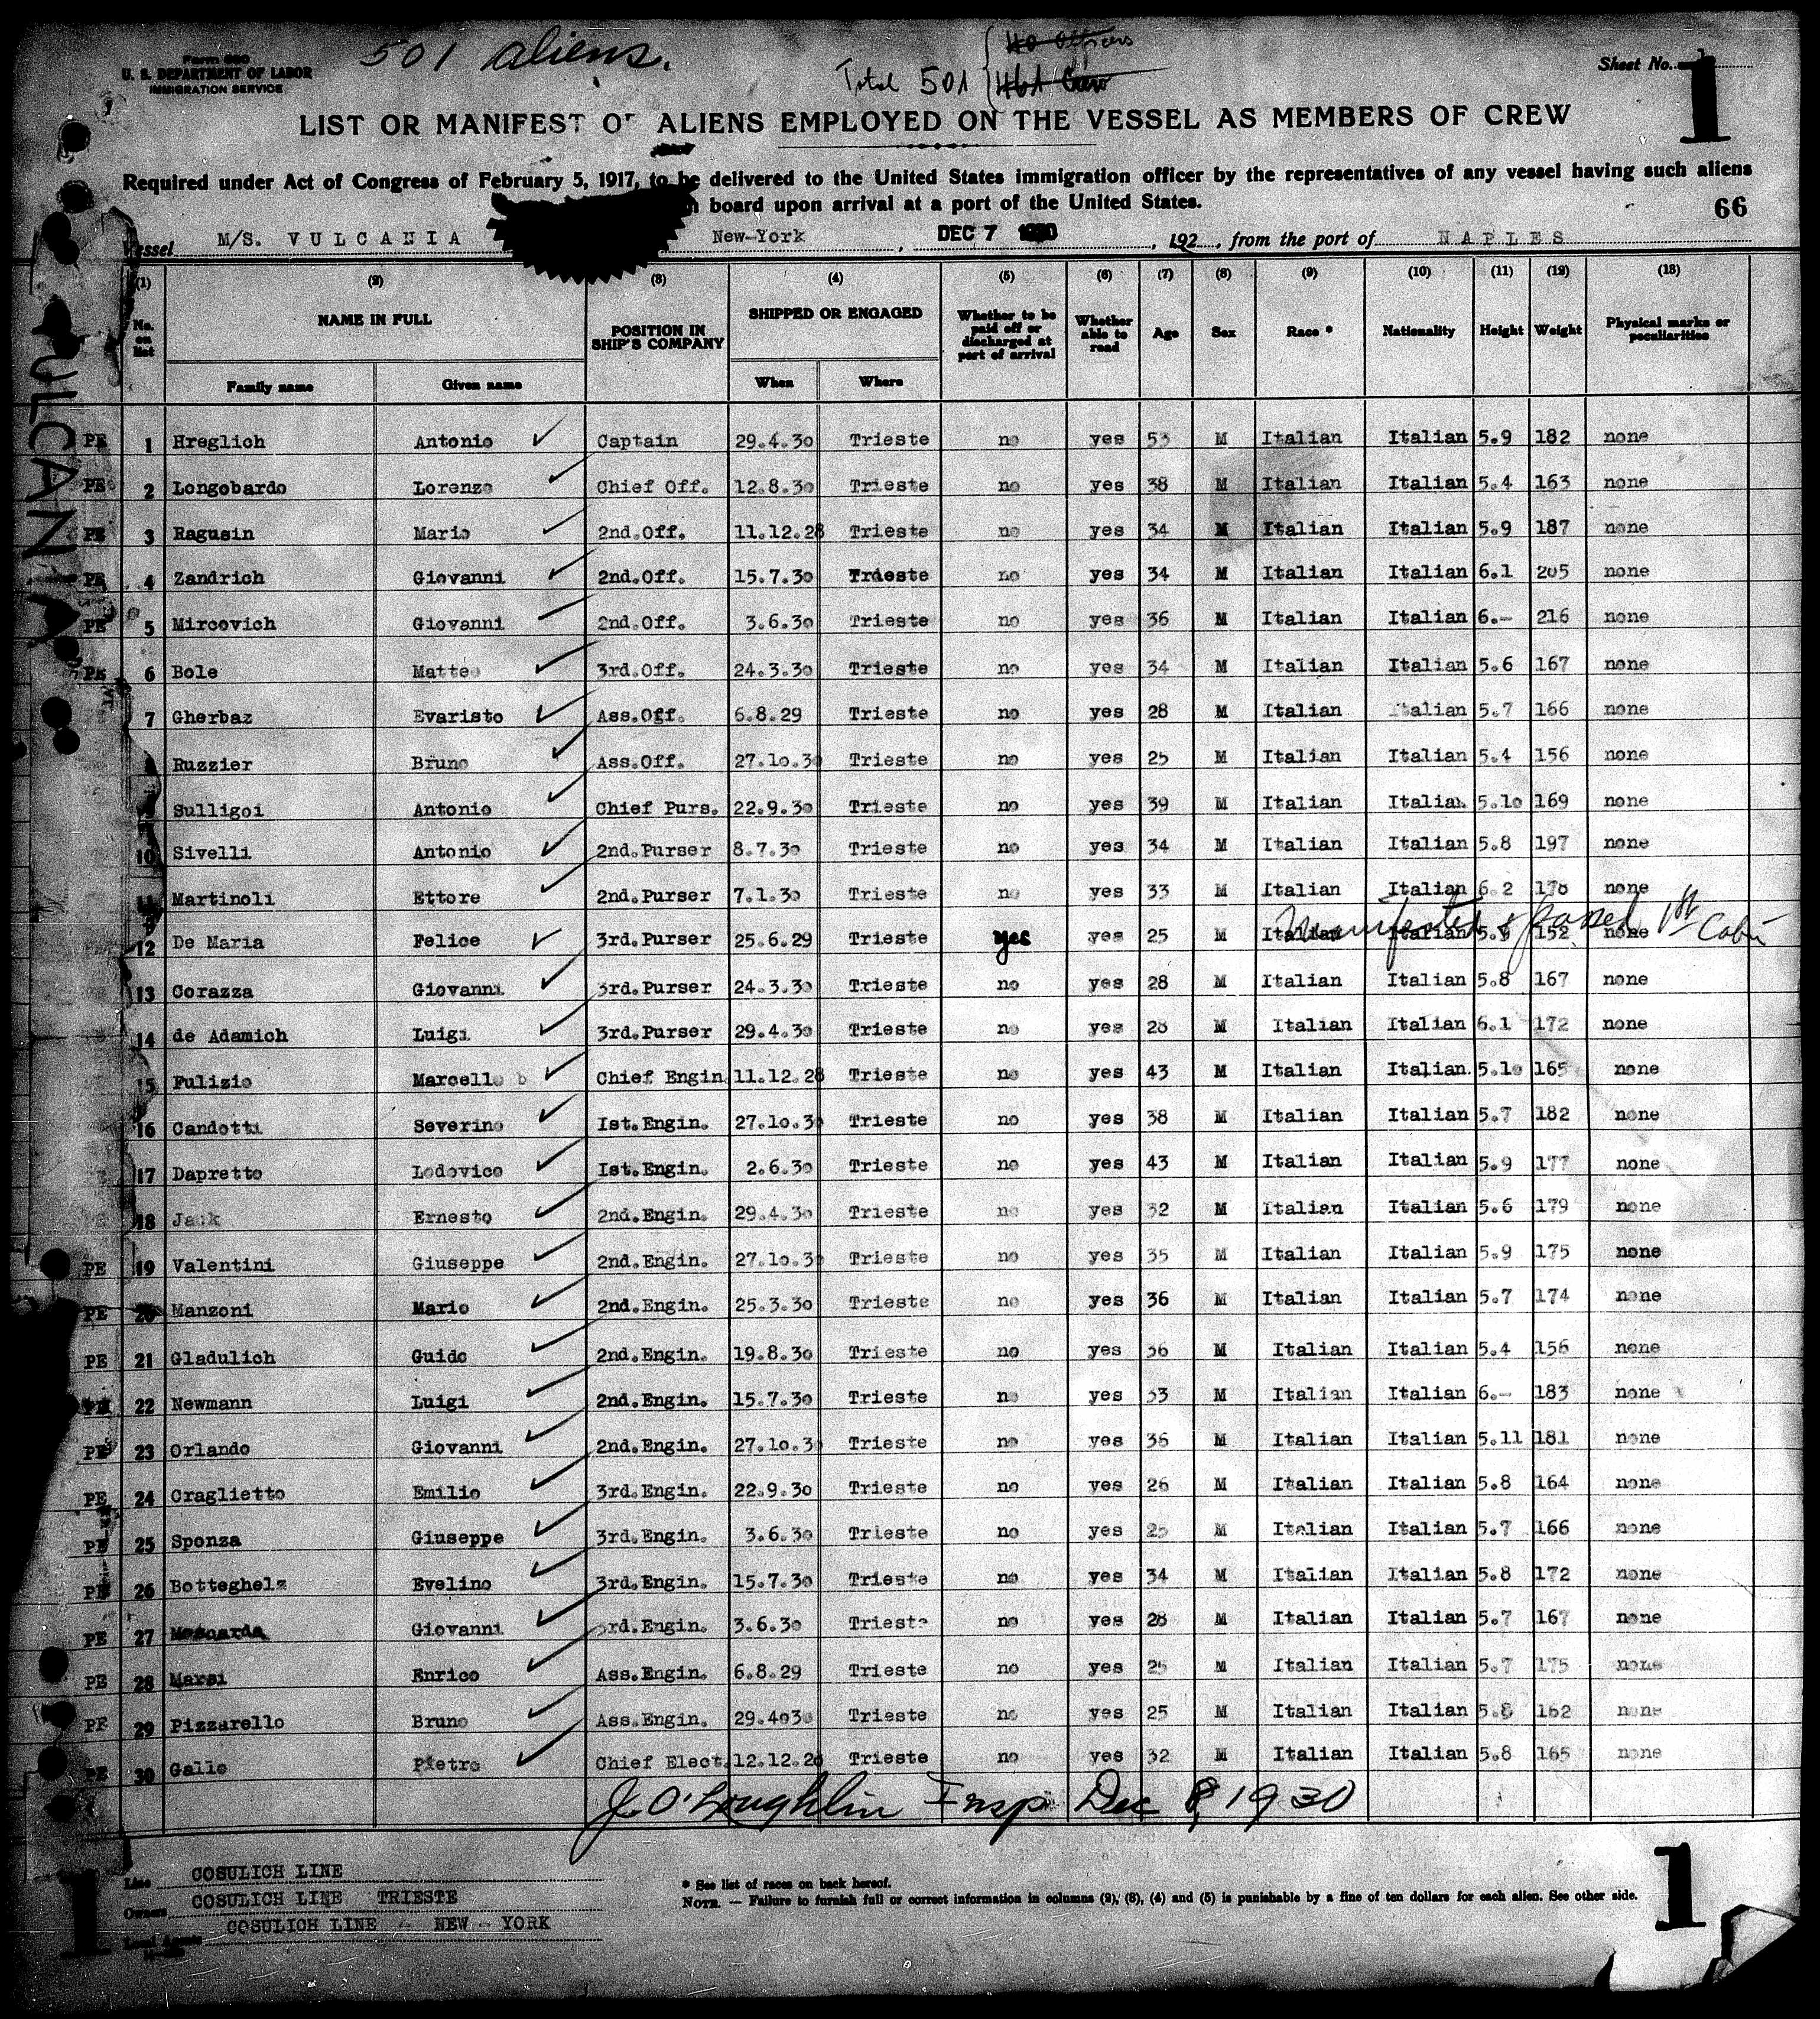 501 aliens.
Form 680
U. S. DEPARTMENT OF LABOR
IMMIGRATION SERVICE
40 Officers
Total 501 461 Crew
Sheet No. 1
LIST OR MANIFEST OF ALIENS EMPLOYED ON THE VESSEL AS MEMBERS OF CREW
Required under Act of Congress of February 5, 1917, to be delivered to the United States immigration officer by the representatives of any vessel having such aliens
board upon arrival at a port of the United States.
66
Vessel M/S. VULCANIA New-York, DEC 7 1930, 192 , from the port of NAPLES
VULCANIA
(1) (2) (3) (4) (5) (6) (7) (8) (9) (10) (11) (12) (13)
No. on list NAME IN FULL POSITION IN SHIP'S COMPANY SHIPPED OR ENGAGED Whether to be paid off or discharged at port of arrival Whether able to read Age Sex Race * Nationality Height Weight Physical marks or peculiarities
Family name Given name When Where
PE 1 Hreglich Antonio Captain 29.4.30 Trieste no yes 53 M Italian Italian 5.9 182 none
PE 2 Longobardo Lorenzo Chief Off. 12.8.30 Trieste no yes 38 M Italian Italian 5.4 163 none
PE 3 Ragusin Mario 2nd.Off. 11.12.28 Trieste no yes 34 M Italian Italian 5.9 187 none
PE 4 Zandrich Giovanni 2nd.Off. 15.7.30 Trieste no yes 34 M Italian Italian 6.1 205 none
PE 5 Mircovich Giovanni 2nd.Off. 3.6.30 Trieste no yes 36 M Italian Italian 6.- 216 none
PE 6 Bole Matteo 3rd.Off. 24.3.30 Trieste no yes 34 M Italian Italian 5.6 167 none
7 Gherbaz Evaristo Ass.Off. 6.8.29 Trieste no yes 28 M Italian Italian 5.7 166 none
Ruzzier Bruno Ass.Off. 27.10.30 Trieste no yes 25 M Italian Italian 5.4 156 none
Sulligoi Antonio Chief Purs. 22.9.30 Trieste no yes 39 M Italian Italian 5.10 169 none
10 Sivelli Antonio 2nd.Purser 8.7.30 Trieste no yes 34 M Italian Italian 5.8 197 none
11 Martinoli Ettore 2nd.Purser 7.1.30 Trieste no yes 33 M Italian Italian 6.2 178 none
Manifested & passed 1st Cabin
12 De Maria Felice 3rd.Purser 25.6.29 Trieste yes yes 25 M Italian Italian 152 none
13 Corazza Giovanni 3rd.Purser 24.3.30 Trieste no yes 28 M Italian Italian 5.8 167 none
14 de Adamich Luigi 3rd.Purser 29.4.30 Trieste no yes 28 M Italian Italian 6.1 172 none
15 Fulizio Marcello b Chief Engin. 11.12.28 Trieste no yes 43 M Italian Italian 5.10 165 none
16 Candotti Severino Ist.Engin. 27.10.30 Trieste no yes 38 M Italian Italian 5.7 182 none
17 Dapretto Lodovico Ist.Engin. 2.6.30 Trieste no yes 43 M Italian Italian 5.9 177 none
18 Jack Ernesto 2nd.Engin. 29.4.30 Trieste no yes 32 M Italian Italian 5.6 179 none
PE 19 Valentini Giuseppe 2nd.Engin. 27.10.30 Trieste no yes 35 M Italian Italian 5.9 175 none
PE 20 Manzoni Mario 2nd.Engin. 25.3.30 Trieste no yes 36 M Italian Italian 5.7 174 none
PE 21 Gladulich Guido 2nd.Engin. 19.8.30 Trieste no yes 36 M Italian Italian 5.4 156 none
22 Newmann Luigi 2nd.Engin. 15.7.30 Trieste no yes 33 M Italian Italian 6.- 183 none
PE 23 Orlando Giovanni 2nd.Engin. 27.10.30 Trieste no yes 36 M Italian Italian 5.11 181 none
PE 24 Craglietto Emilio 3rd.Engin. 22.9.30 Trieste no yes 26 M Italian Italian 5.8 164 none
PE 25 Sponza Giuseppe 3rd.Engin. 3.6.30 Trieste no yes 25 M Italian Italian 5.7 166 none
PE 26 Botteghelz Evelino 3rd.Engin. 15.7.30 Trieste no yes 34 M Italian Italian 5.8 172 none
PE 27 Moscarda Giovanni 3rd.Engin. 3.6.30 Trieste no yes 28 M Italian Italian 5.7 167 none
PE 28 Marsi Enrico Ass.Engin. 6.8.29 Trieste no yes 25 M Italian Italian 5.7 175 none
PE 29 Pizzarello Bruno Ass.Engin. 29.4030 Trieste no yes 25 M Italian Italian 5.8 162 none
PE 30 Gallo Pietro Chief Elect. 12.12.28 Trieste no yes 32 M Italian Italian 5.8 165 none
J. O'Loughlin Insp Dec 8, 1930
Line COSULICH LINE
Owners COSULICH LINE TRIESTE
Local Agents COSULICH LINE - NEW - YORK
* See list of races on back hereof.
NOTE. — Failure to furnish full or correct information in columns (2), (3), (4) and (5) is punishable by a fine of ten dollars for each alien. See other side.
1 1